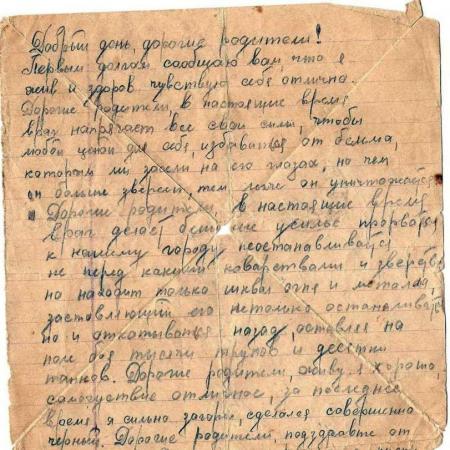 Добрый день, дорогие родители!
Первым долгом сообщаю вам, что я
жив и здоров чувствую себя отлично.
Дорогие родители, в настоящие время
враг напрягает все свои силы, чтобы
любой ценой для себя, избавиться от бельма,
которым мы засели на его глазах, но чем
он больше звереет, тем легче он уничтожается
Дорогие родители, в настоящие время
враг делает большие усилье прорваться
к нашему городу неостанавливаясь
не перед какими коварствами и зверства
но находит только шквал огня и металла,
заставляющий его нетолько останавливать
но и откатываться назад, оставляя на
поле боя тысячи трупов и десятки
танков. Дорогие родители, живу я хорошо,
самочуствие отличное, за последнее
время я сильно загорел, сделался совершенно
черный. Дорогие родители, поздравте от